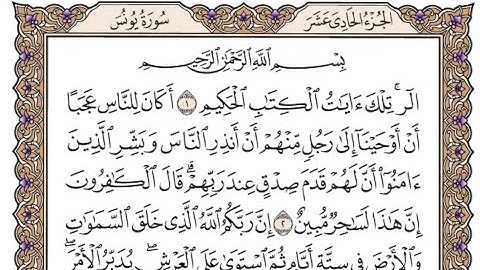 سُورَةُ يُونُسَ الجُزْءُ الحَادِي عَشَرَ
بِسْمِ ٱللَّهِ ٱلرَّحْمَٰنِ ٱلرَّحِيمِ
الٓر ۚ تِلْكَ ءَايَٰتُ ٱلْكِتَٰبِ ٱلْحَكِيمِ ١ أَكَانَ لِلنَّاسِ عَجَبًا
أَنْ أَوْحَيْنَآ إِلَىٰ رَجُلٍ مِّنْهُمْ أَنْ أَنذِرِ ٱلنَّاسَ وَبَشِّرِ ٱلَّذِينَ
ءَامَنُوٓا۟ أَنَّ لَهُمْ قَدَمَ صِدْقٍ عِندَ رَبِّهِمْ ۗ قَالَ ٱلْكَٰفِرُونَ
إِنَّ هَٰذَا لَسَٰحِرٌ مُّبِينٌ ٢ إِنَّ رَبَّكُمُ ٱللَّهُ ٱلَّذِى خَلَقَ ٱلسَّمَٰوَٰتِ
وَٱلْأَرْضَ فِى سِتَّةِ أَيَّامٍ ثُمَّ ٱسْتَوَىٰ عَلَى ٱلْعَرْشِ ۖ يُدَبِّرُ ٱلْأَمْرَ ۖ